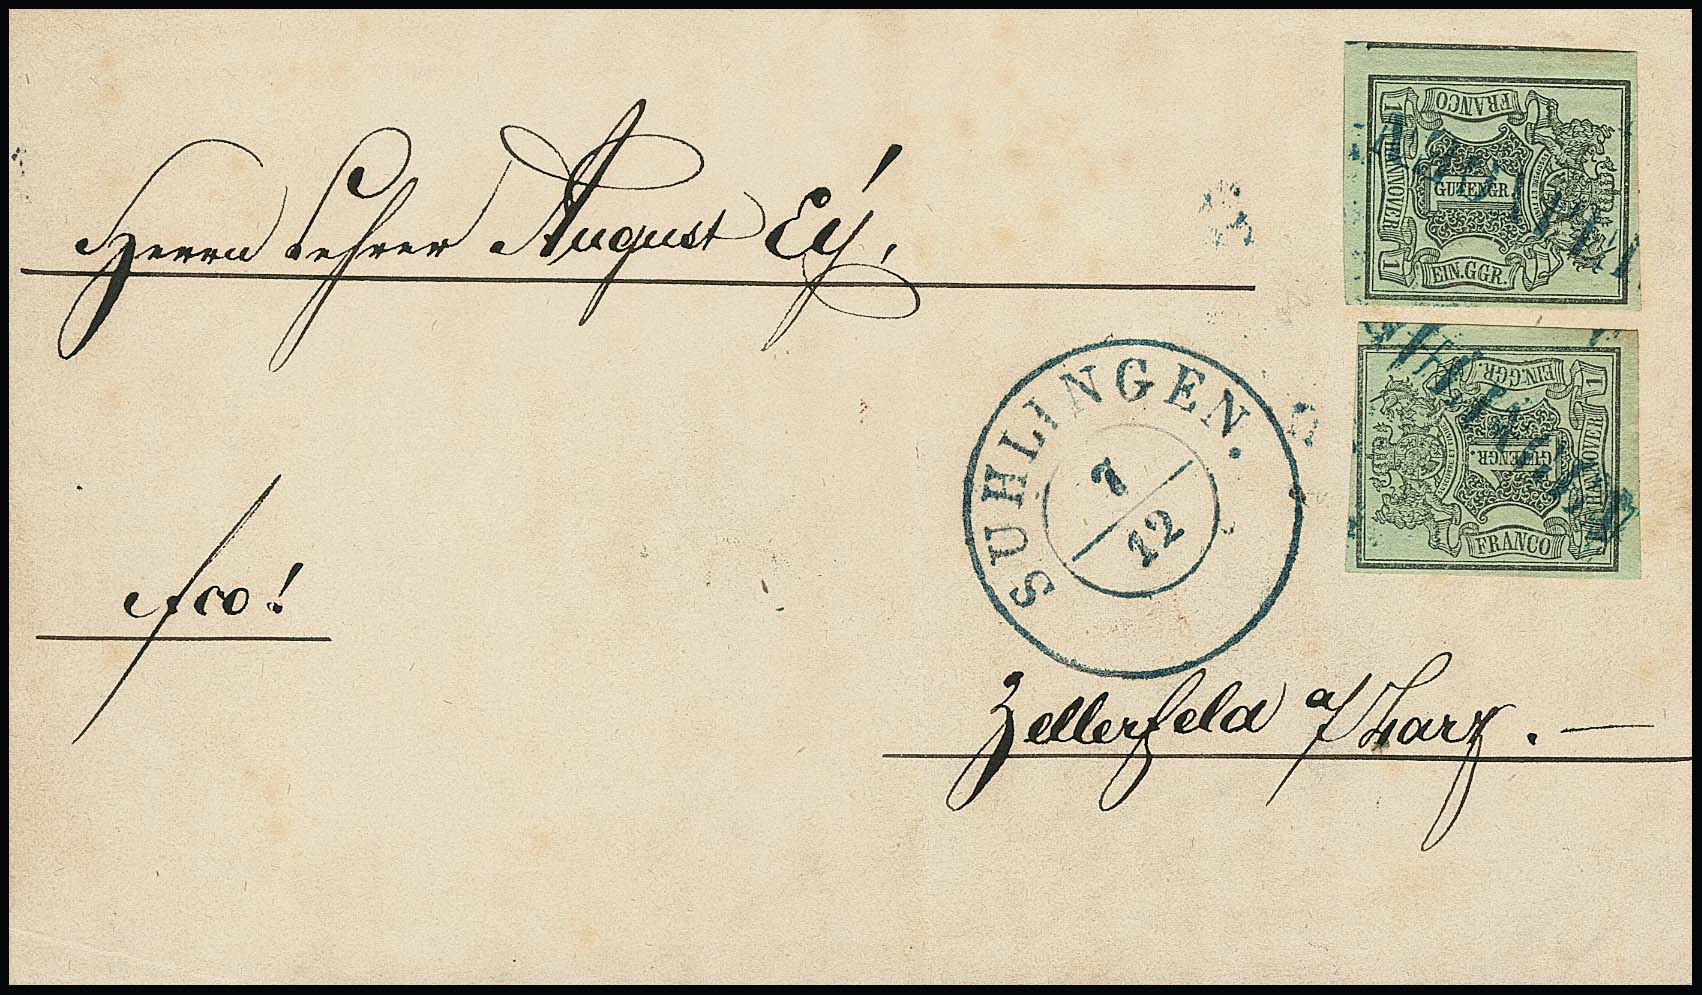 Herrn Lehrer August Ey,
FRANCO
1 HANNOVER 1
GUTENGR.
EIN.GGR.
EIN.GGR.
GUTENGR.
1 HANNOVER 1
FRANCO
SUHLINGEN.
7
12
fco!
Zellerfeld a/Harz. —